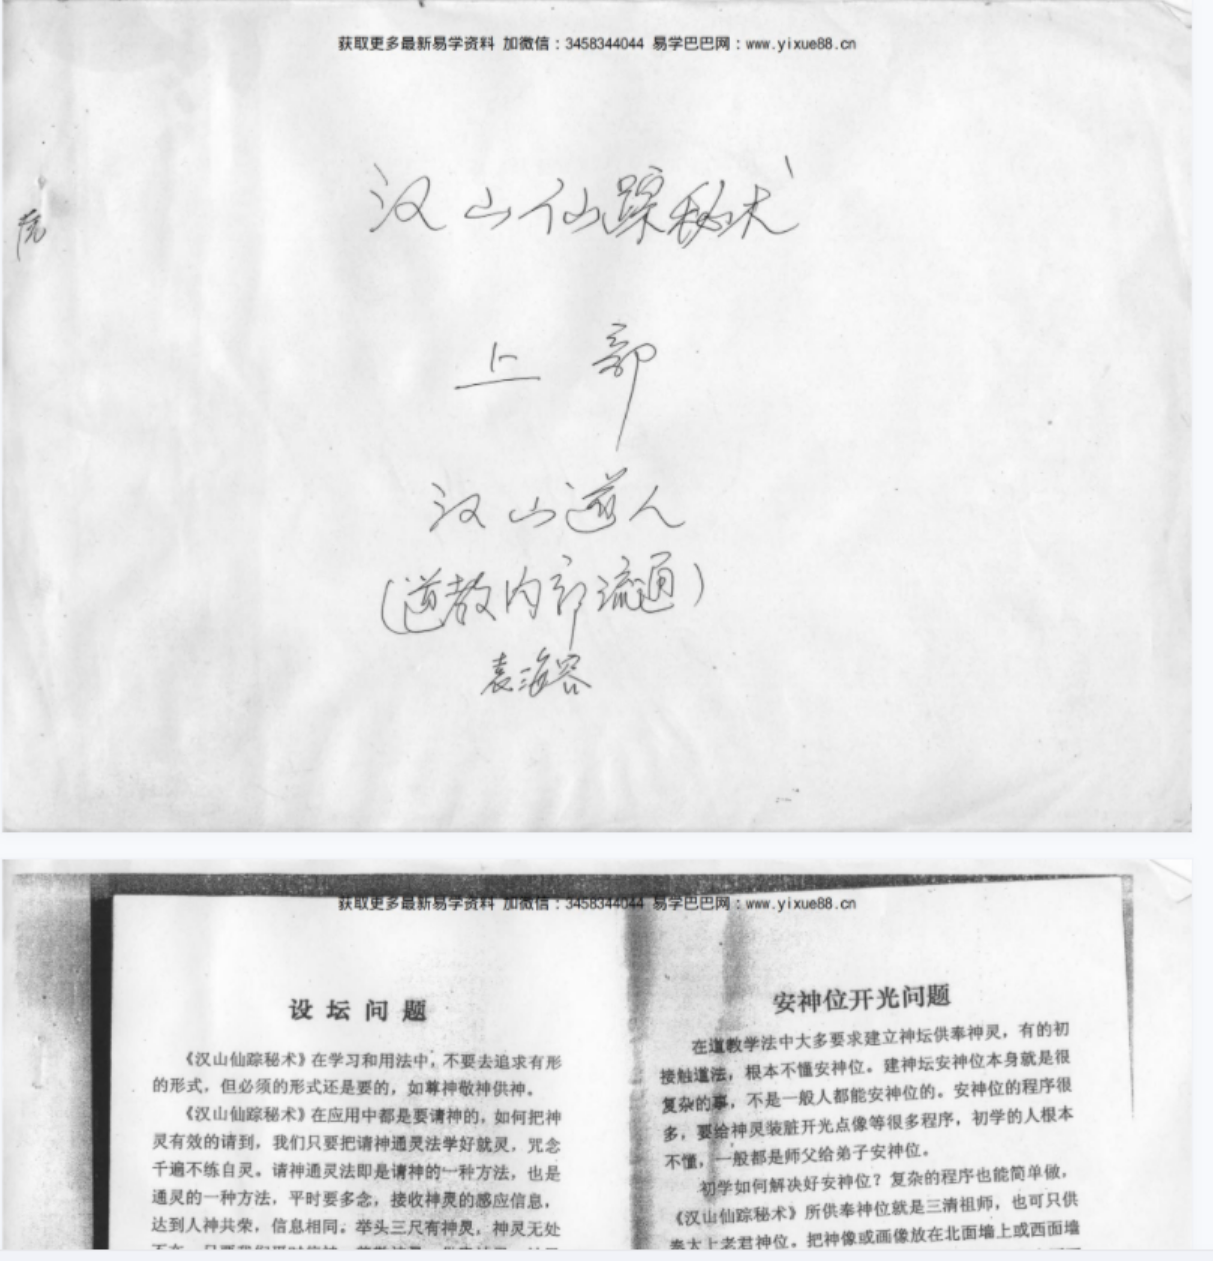 获取更多最新易学资料 加微信：3458344044 易学巴巴网：www.yixue88.cn
汉山仙踪秘术
上 部
汉山道人
（道教内部流通）
袁海容
获取更多最新易学资料 加微信：3458344044 易学巴巴网：www.yixue88.cn
设 坛 问 题
《汉山仙踪秘术》在学习和用法中，不要去追求有形
的形式，但必须的形式还是要的，如尊神敬神供神。
《汉山仙踪秘术》在应用中都是要请神的，如何把神
灵有效的请到，我们只要把请神通灵法学好就灵，咒念
千遍不练自灵。请神通灵法即是请神的一种方法，也是
通灵的一种方法，平时要多念，接收神灵的感应信息，
达到人神共荣，信息相同。举头三尺有神灵，神灵无处
安神位开光问题
在道教学法中大多要求建立神坛供奉神灵，有的初
接触道法，根本不懂安神位。建神坛安神位本身就是很
复杂的事，不是一般人都能安神位的。安神位的程序很
多，要给神灵装脏开光点像等很多程序，初学的人根本
不懂，一般都是师父给弟子安神位。
初学如何解决好安神位？复杂的程序也能简单做，
《汉山仙踪秘术》所供奉神位就是三清祖师，也可只供
奉太上老君神位。把神像或画像放在北面墙上或西面墙